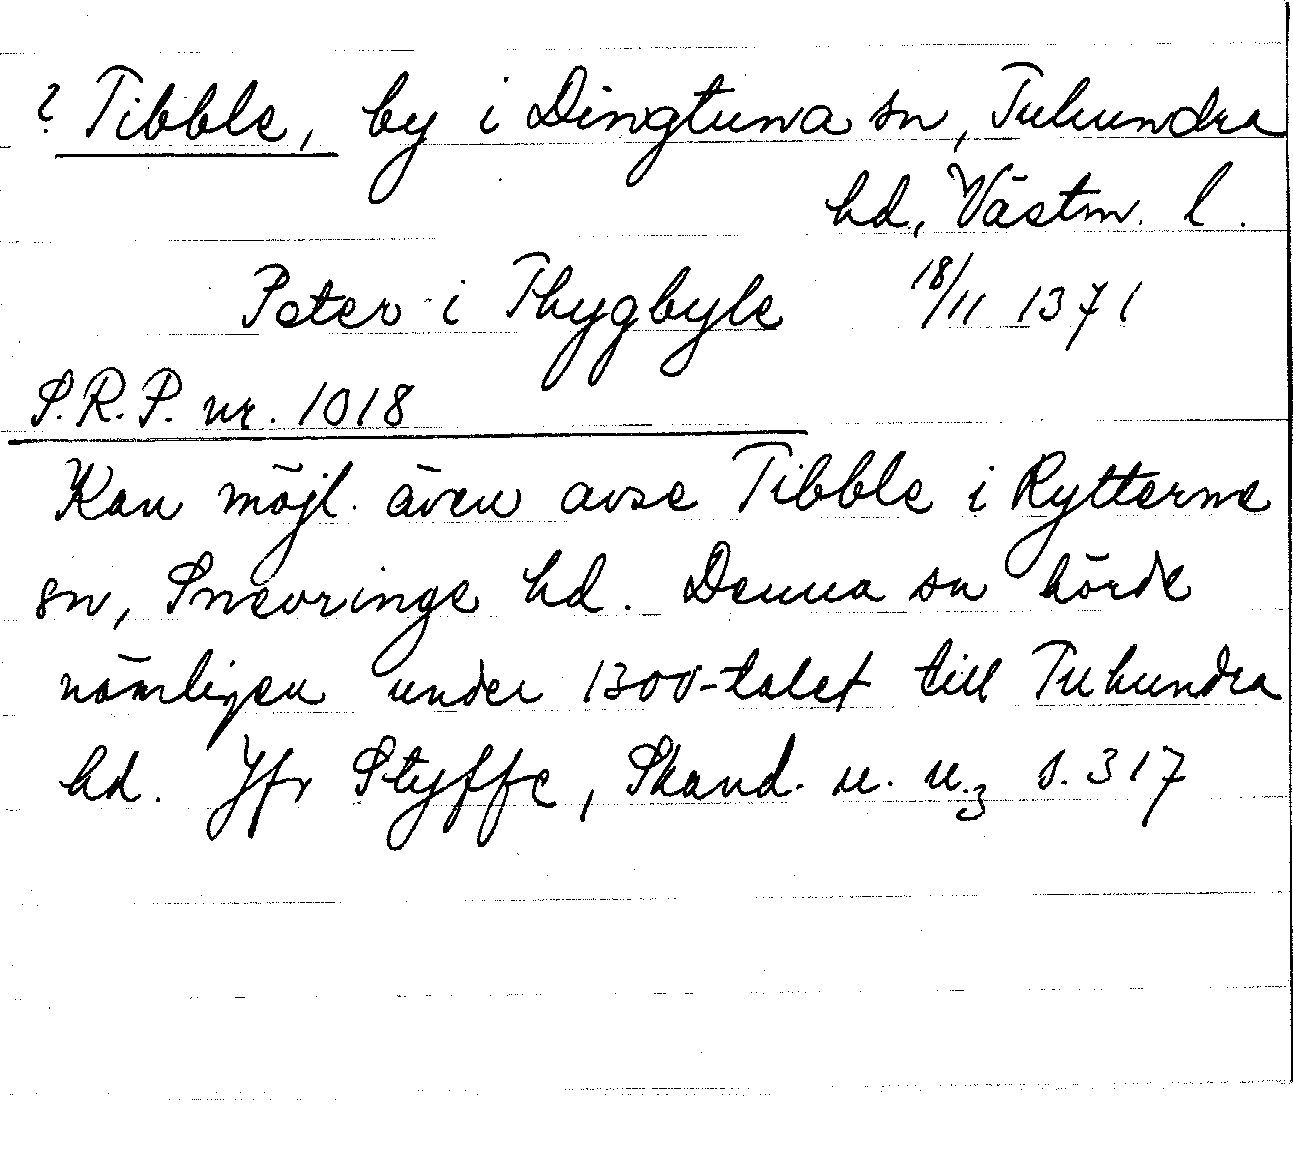 ? Tibble, by i Dingtuna sn, Tuhundra
hd, Västm. l.
Peter i Thygbyle 18/11 1371
S.R.P. nr. 1018
Kan möjl. även avse Tibble i Rytterne
sn, Snevringe hd. Denna sn hörde
nämligen under 1300-talet till Tuhundra
hd. Jfr Styffe, Skand. u. u.3 s. 317